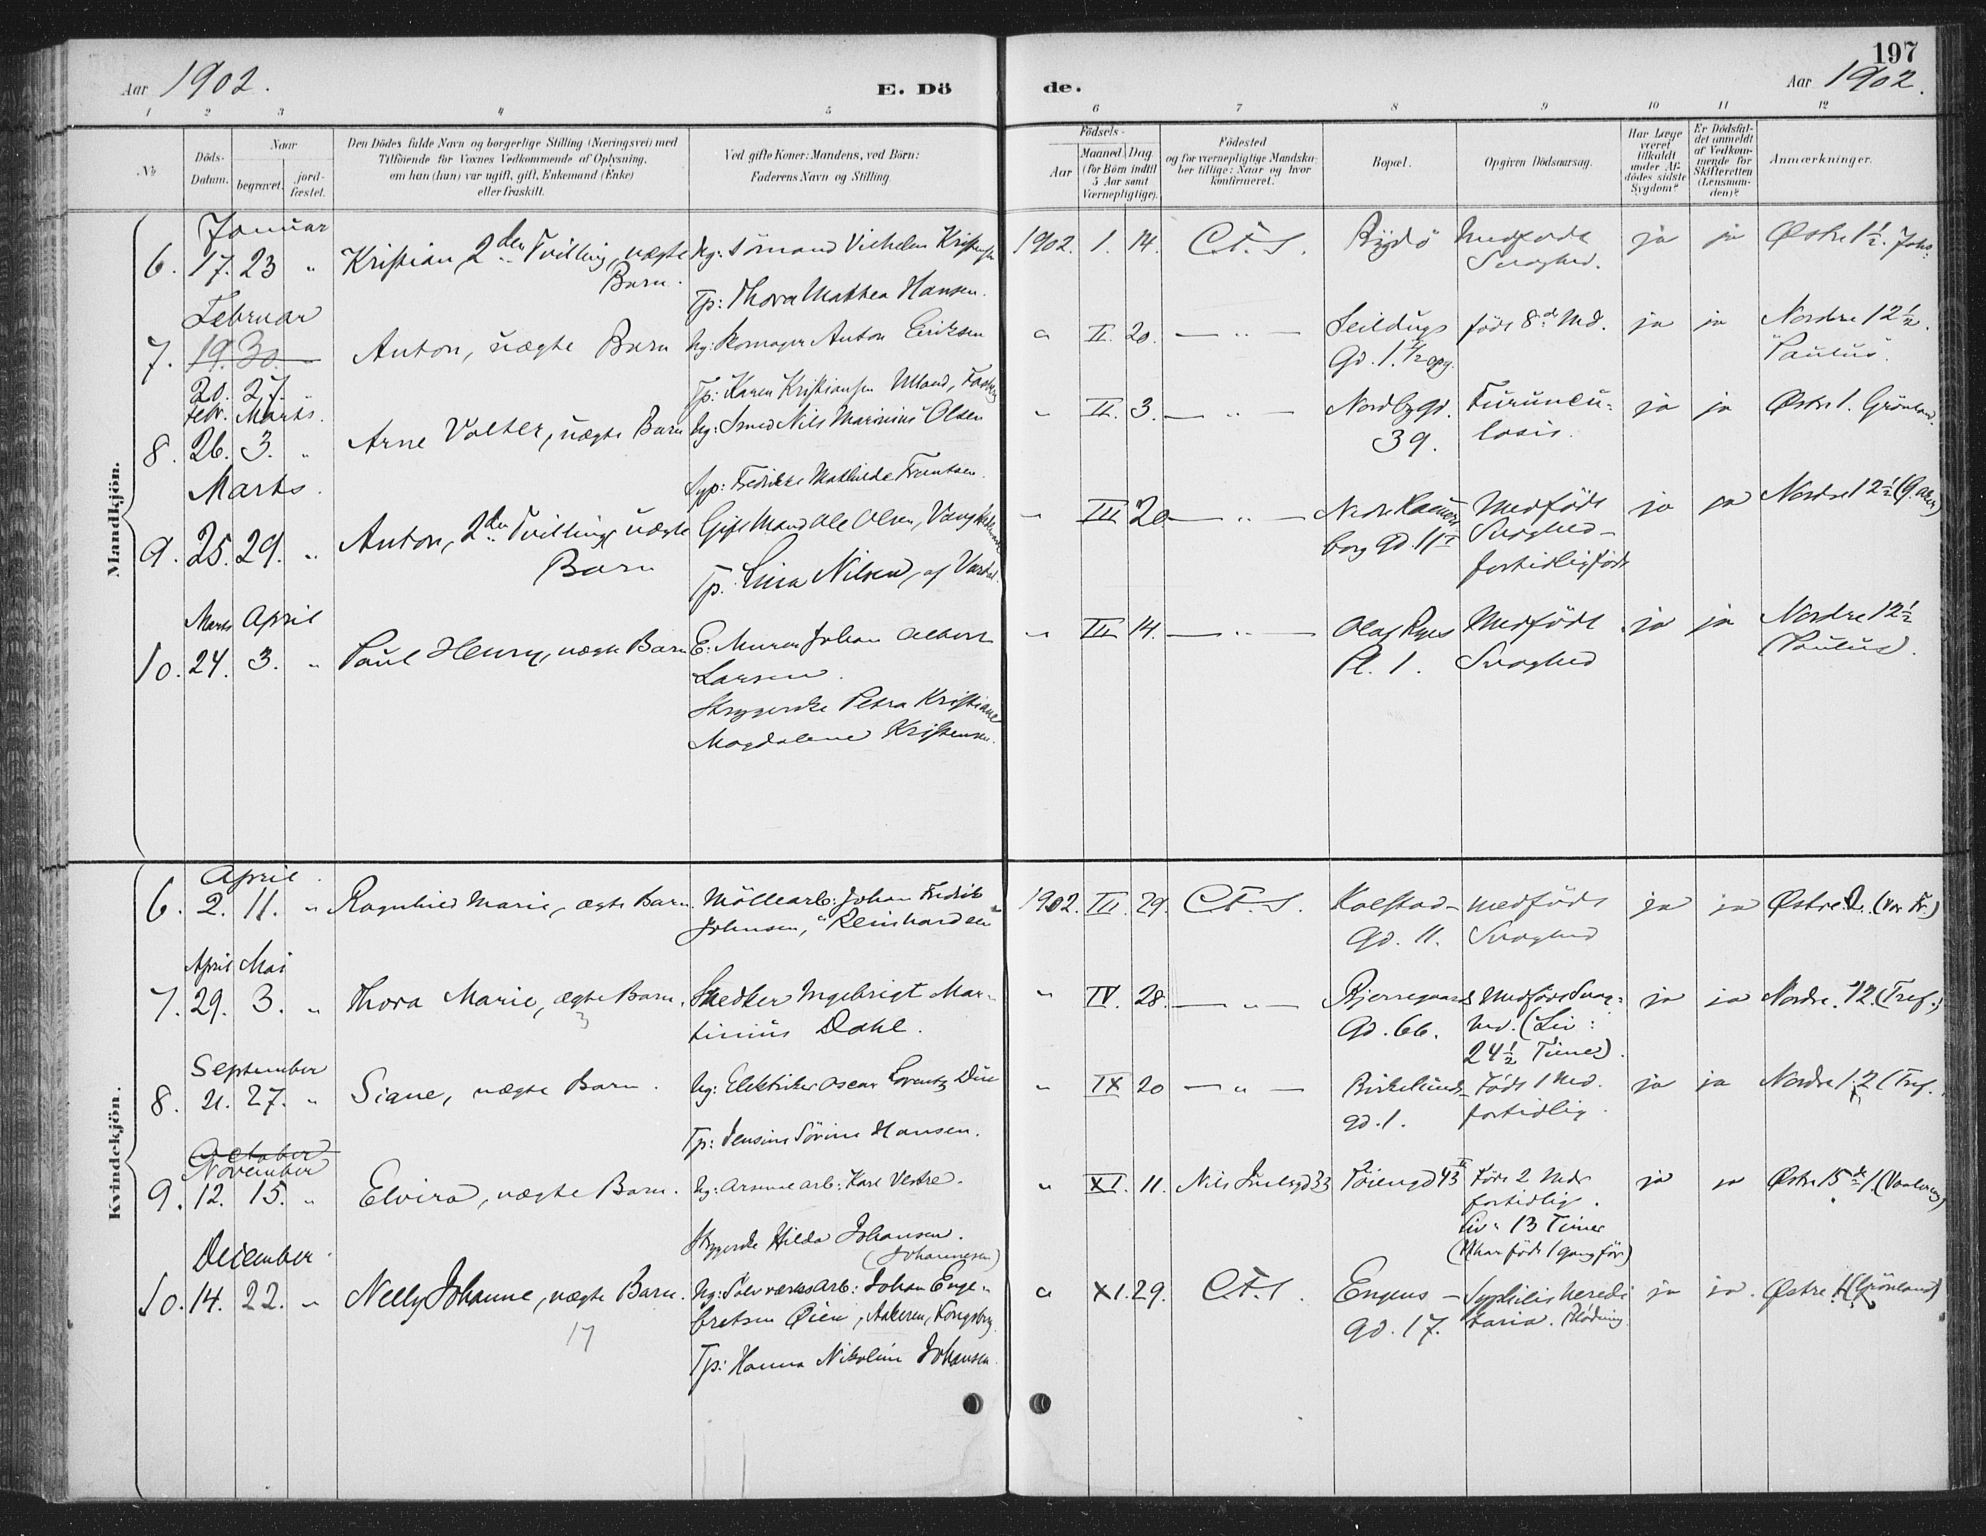 197
Aar 1902.
E. Dö
de.
Aar 1902.
1 2 3 4 5 6 7 8 9 10 11 12
No
Döds-
Datum.
Naar
begravet.
jord-
fæstet.
Den Dödes fulde Navn og borgerlige Stilling (Næringsvei) med
Tilföiende for Voxnes Vedkommende af Oplysning,
om han (hun) var ugift, gift, Enkemand (Enke)
eller fraskilt.
Ved gifte Koner: Mandens, ved Börn:
Faderens Navn og Stilling.
Födsels-
Aar
Maaned. Dag.
(for Börn indtil
5 Aar samt
Værnepligtige).
Födested
og for værnepligtige Mandska-
ber tillige: Naar og hvor
konfirmeret.
Bopæl.
Opgiven Dödsaarsag.
Har Læge
været
tilkaldt
under Af-
dödes sidste
Sygdom?
Er Dödsfal-
det anmeldt
af Vedkom-
mende for
Skifteretten
(Lensman-
den)?
Anmærkninger.
Mandkjön.
Januar
6. 17. 23 " Kristian, 2den Tvilling, uægte
Barn.
Ug: Sömand Vilhelm
Tp: Thora Mathea Hansen.
1902. 1. 14. C.F.S. Bygdö Medfödt
Svaghed.
ja ja Østre 1½. Johs:
Februar
7. 19. 30.
20. 27.
Anton, uægte Barn
Ug: Skomager Anton Eriksen
Tp: Karen Kristiansen Ulland,
" II. 20. — " — Seildugs
Gd. 1. opg.
födt 8de Md. ja ja Nordre 12½.
"Paulus".
Febr. Marts.
8. 26. 3. " Arne Volter, uægte Barn
Ug: Smed Nils Marinius Olsen
Syp: Fredrikke Mathilde Frantsen.
" II. 3. — " — Nordbygd.
39.
Furuncu-
losis.
ja ja Østre 1. Grönland.
Marts.
9. 25. 29. " Anton, 2den Tvilling, uægte
Barn
Gift Mand Ole Olsen, Vang
Tp. Lina Nilsen, af Vardal.
" III 20 — " — Nedre
borg Gd. 11
Medfödt
Svaghed –
fortidlig födt
ja ja Nordre 12½
Marts April
10. 24. 3. " Paul Henry, uægte Barn
E. Murer Johan Albert
Larsen.
Strygerske Petra Kristiane
Magdalene Kristensen.
" III 14. — " — Olaf Ryes
Pl. 1.
Medfödt
Svaghed
ja ja Nordre 12½
(Paulus).
Kvindekjön.
April.
6. 2. 11. " Ragnhild Marie, ægte Barn.
Möllearb: Johan Fredrik
Johnsen, "Reinhardsen"
1902. III. 29. C.F.S. Kolstad-
gd. 11.
medfödt
Svaghed
ja ja Østre 2. (Vor Fr.)
April Mai
7. 29. 3. " Thora Marie, ægte Barn.
3
Snedker Ingebrigt Mar-
tinius Dahl.
" IV. 28. — " — Bjerregaards
Gd. 66.
Medfödt Svag-
hed. (Liv:
24½ Timer).
ja ja Nordre. 12. (Tref.)
September
8. 21. 27. " Siane, uægte Barn.
Ug: Elektriker Oscar Lorentz
Tp: Jensine Sörine Hansen.
" IX 20 — " — Birkelunds
gd. 1.
Födt 1 Md.
fortidlig.
ja ja Nordre 12 (Tref.
October
November
9. 12. 15. " Elvira, uægte Barn.
Ug: Arb: Karl Vestre.
Strygerske Hilda Johansen.
(Johannesen)
" XI. 11. Nils Juelsgd 33 Töiengd 43
Födt 2 Mdr
fortidlig.
Liv: 13 Timer
(Ikke födt 1 gang för)
ja ja Østre 15de 1. (Vaalereng)
December.
10. 14. 22. " Nelly Johanne, uægte Barn.
17
Ug: Sölvværksarb: Johan Enge-
bretsen Øien, Kongsberg.
Tp: Hanna Nikoline Johansen.
" XI. 29. C.F.S. Engens –
gd. 17.
Syphilis heredi
taria. Blödning.
ja ja. Østre 1 (Grönland)